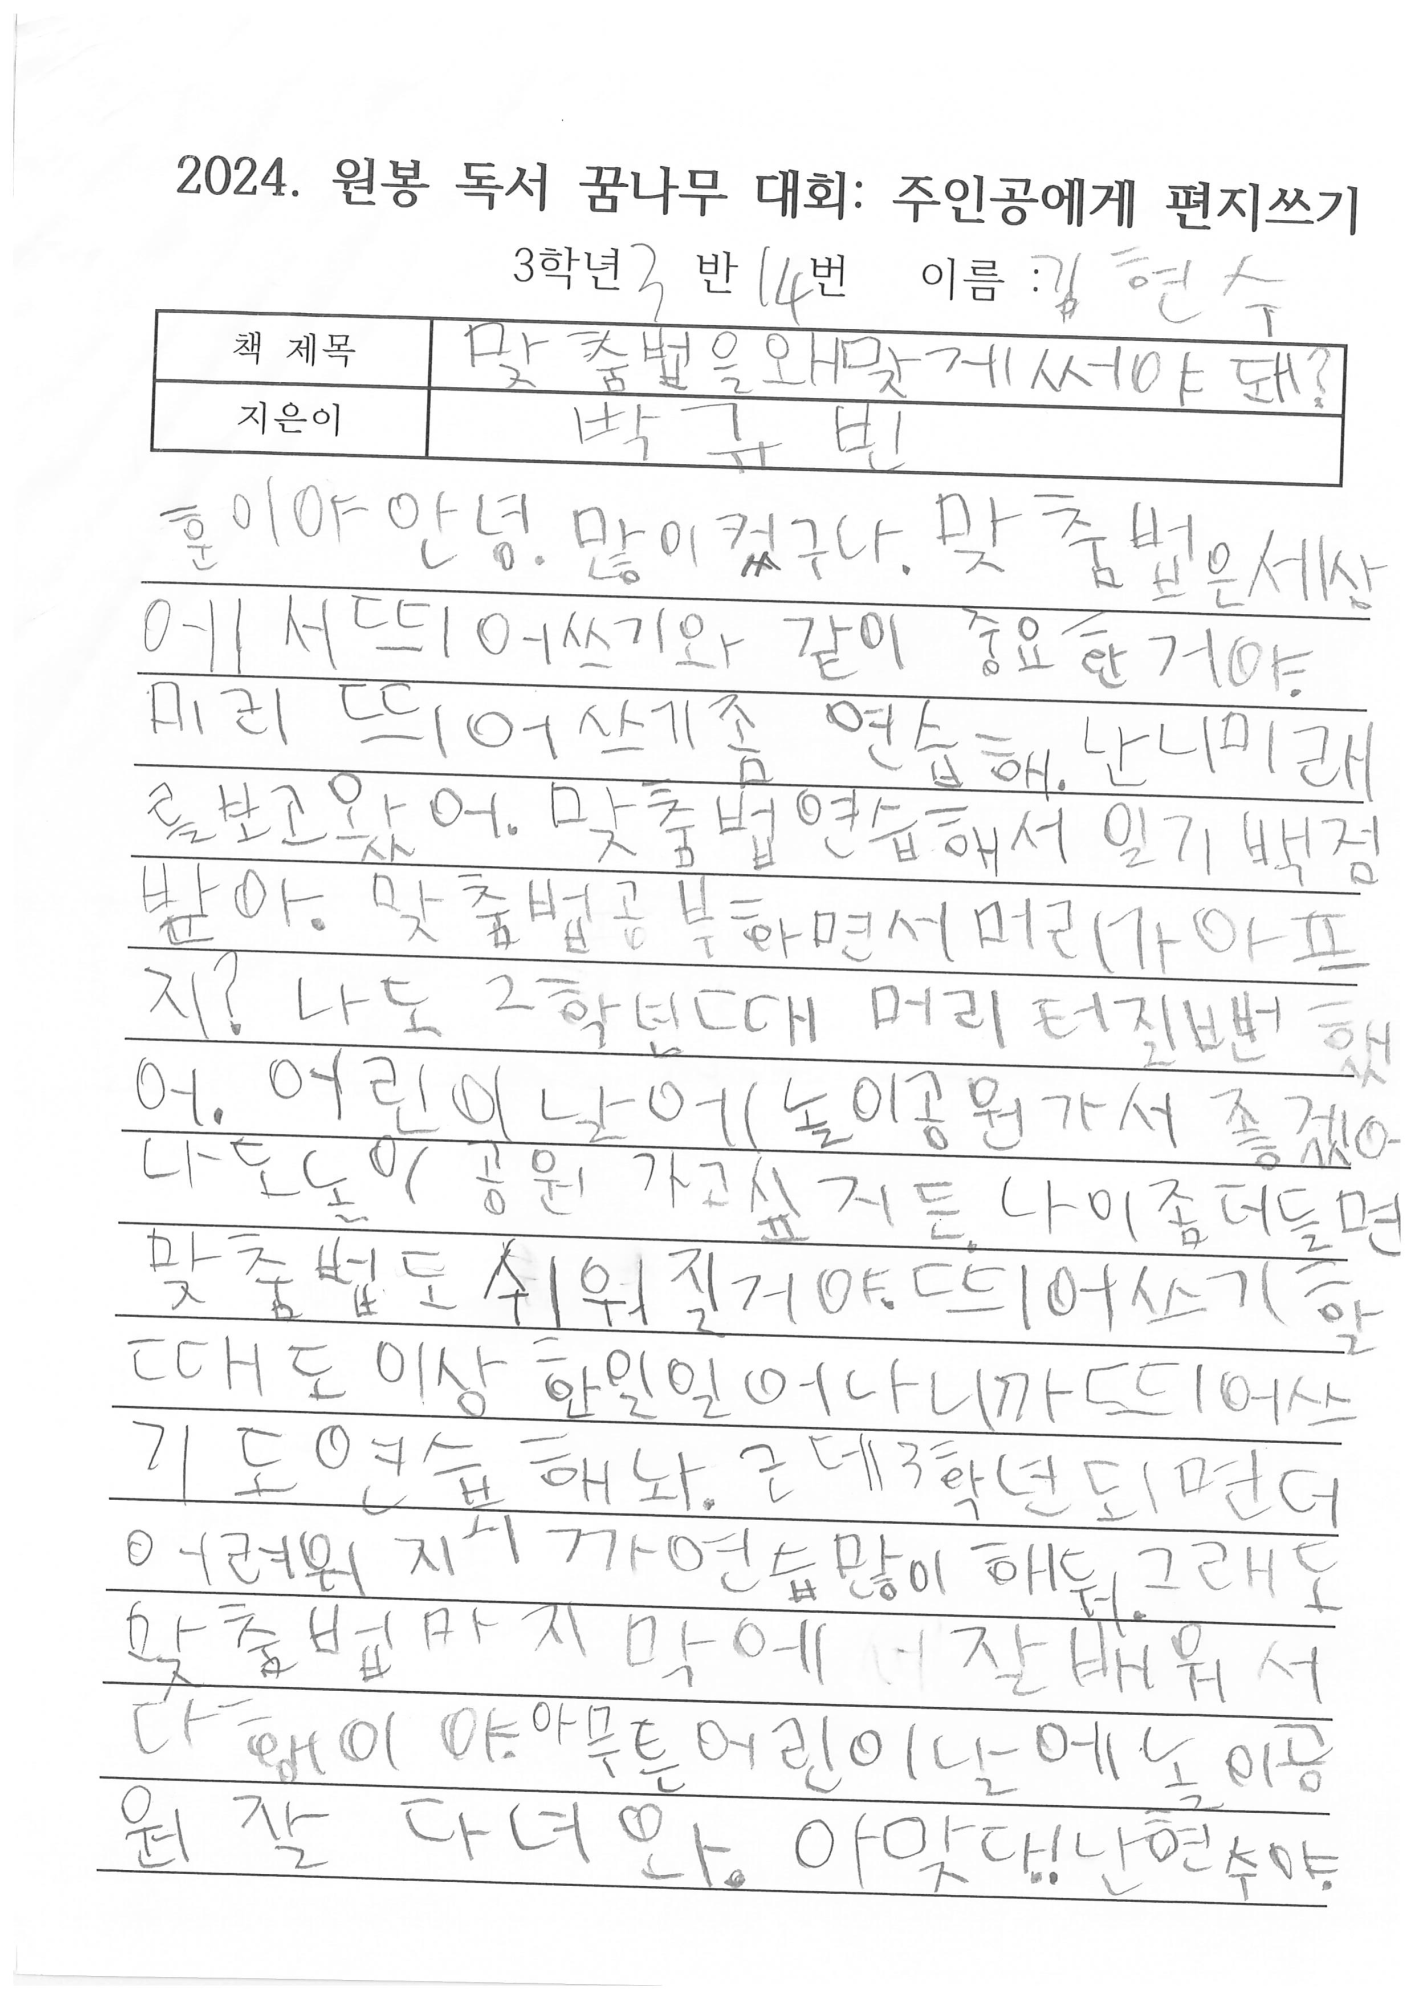 2024. 원봉 독서 꿈나무 대회: 주인공에게 편지쓰기
3학년 3 반 14번 이름 : 김현수
책 제목 맞춤법을 왜 맞게 써야 돼?
지은이 박규빈
훈이야 안녕. 많이 컸구나. 맞춤법은 세상
에서 뜨띄어쓰기와 같이 중요한 거야.
미리 띄어쓰기좀 연습해. 난 니미래
를보고왔어. 맞춤법연습해서 일기 백점
받아. 맞춤법공부하면서 머리가 아프
지? 나도 2학년때 머리 터질뻔 했
어. 어린이날에 놀이공원가서 좋겠어
나도놀이 공원 가고싶거든. 나이좀더들면
맞춤법도 쉬워질거야. 띄어쓰기할
때도 이상한일일어나니까 띄어쓰
기도연습해놔. 근데 3학년되면더
어려워지니까연습많이 해둬. 그래도
맞춤법마지막에 잘배워서
다행이야. 아무튼어린이날에놀이공
원 잘 다녀와. 아맞댜! 난현수야.